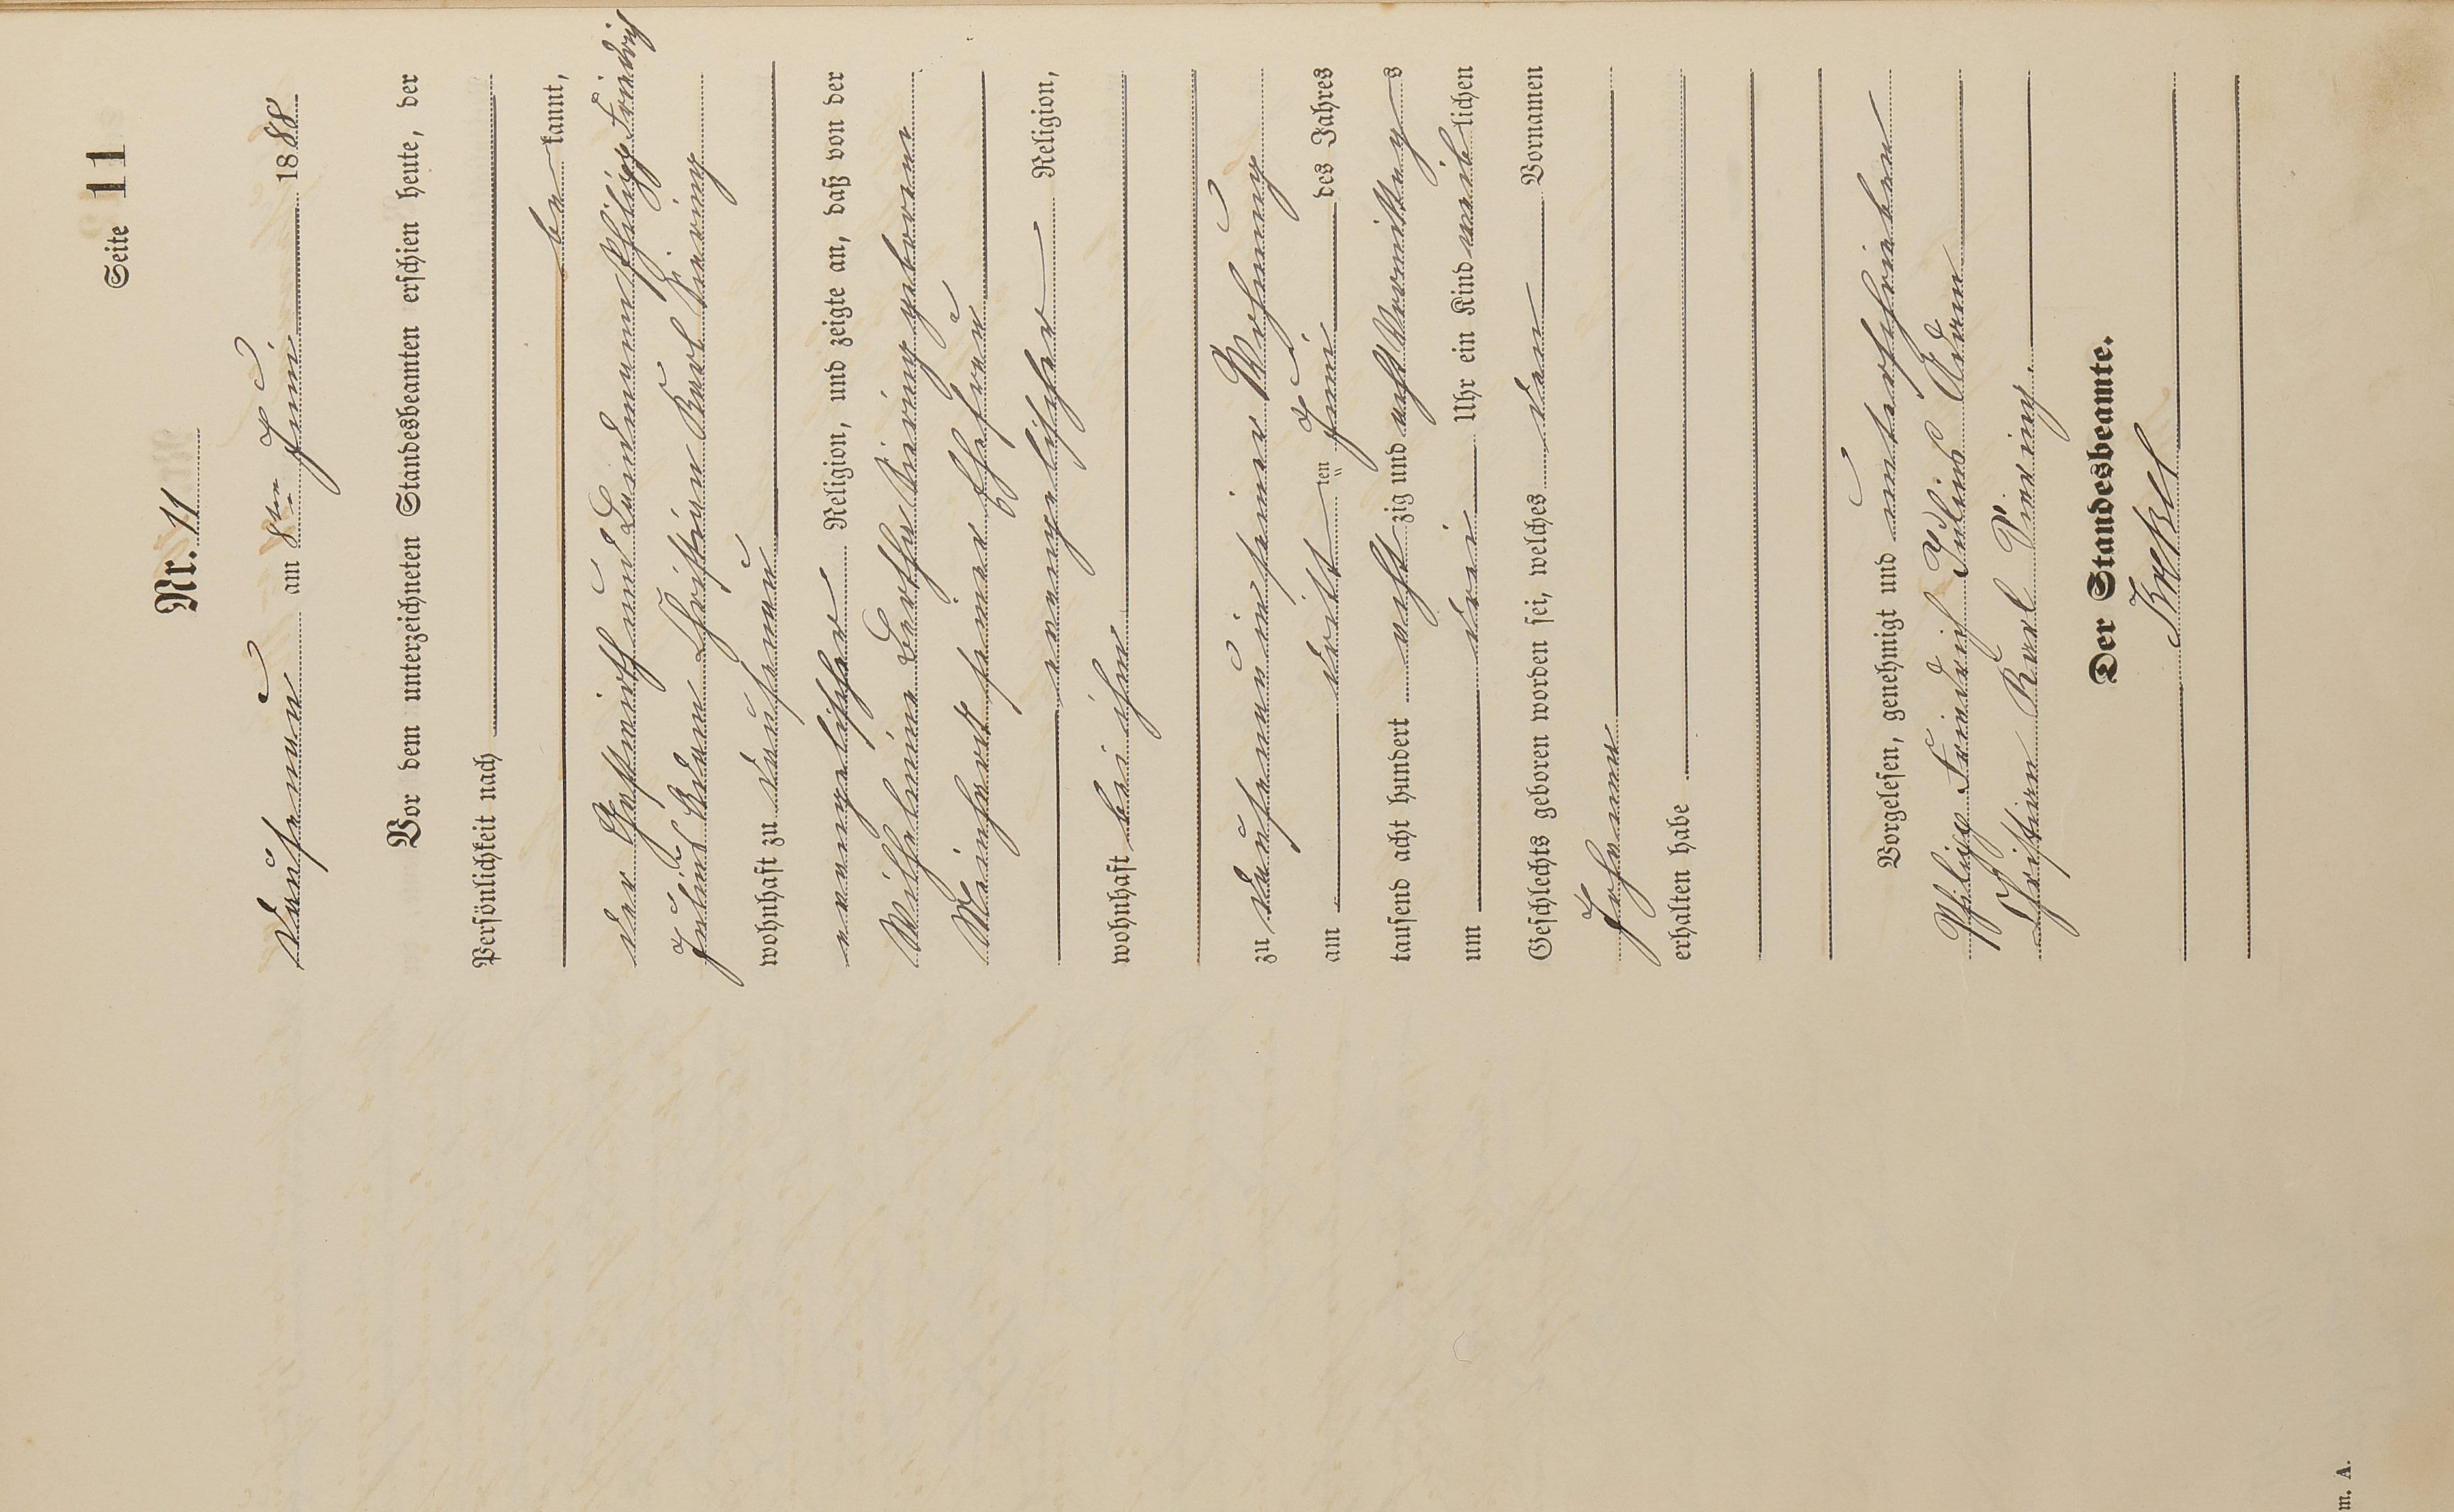 Seite 11
Nr. 11
am 8ten Juni 1888
Vor dem unterzeichneten Standesbeamten erschien heute, der
Persönlichkeit nach
be kannt,
der Gastwirth und Landmann Philipp Friedrich
Julius Adam Christian Karl Viering
wohnhaft zu
evangelischer Religion, und zeigte an, daß von der
Wilhelmine Bertha Viering geborene
Meinhardt seiner Ehefrau
evangelischer Religion,
wohnhaft bei ihm
zu in seiner Wohnung
am dritt ten Juni des Jahres
tausend acht hundert acht zig und acht Vormittag s
um drei Uhr ein Kind weib lichen
Geschlechts geboren worden sei, welches den Vornamen
Johanne
erhalten habe
Vorgelesen, genehmigt und unterschrieben
Philipp Friedrich Julius Adam
Christian Karl Viering.
Der Standesbeamte.
m. A.